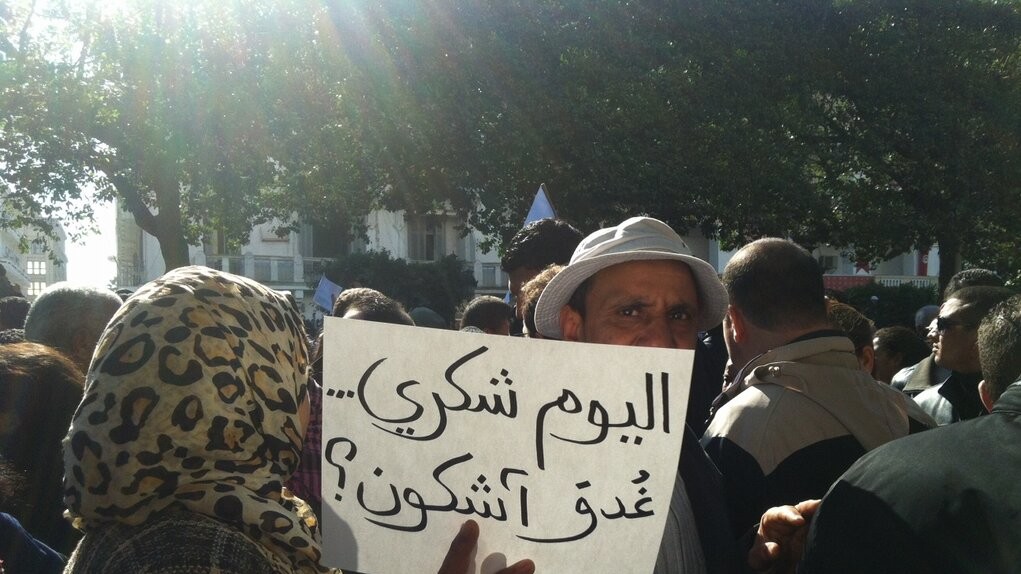 اليوم شكري...
غُدق آشكون؟